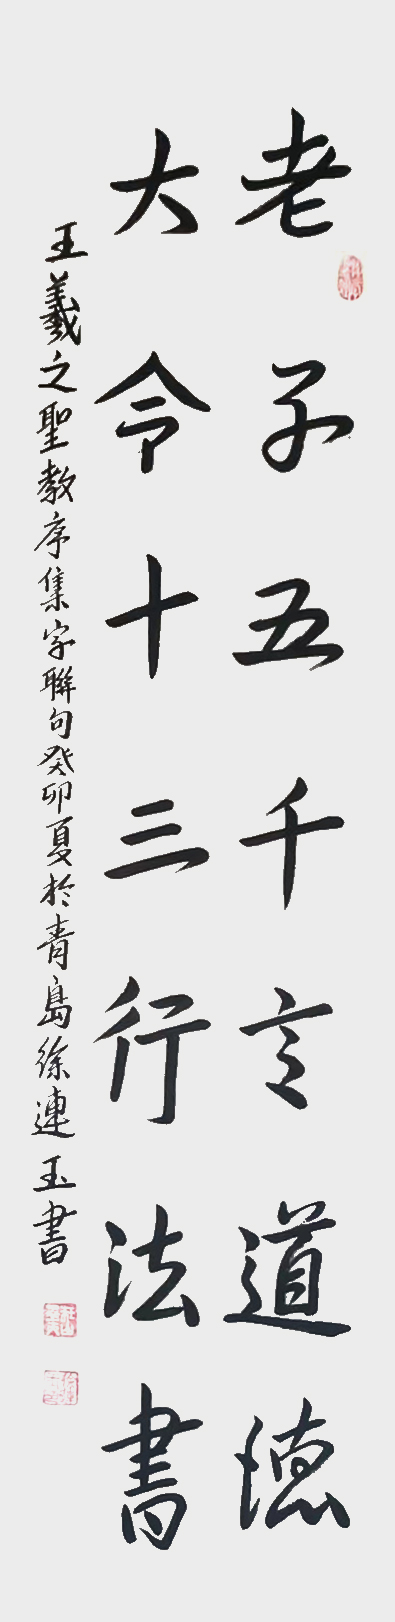 老子五千言道德
大令十三行法書
王羲之聖教序集字聯句癸卯夏於青島徐連玉書